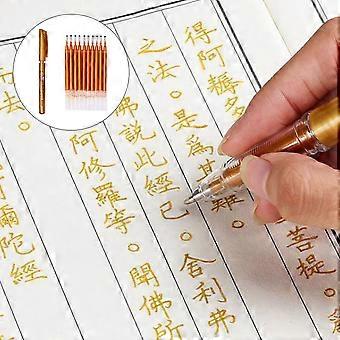 得阿耨多
菩提。
之法。是爲甚難。
佛說此經已。舍利弗
阿修羅等。聞佛所
去。
彌陀經